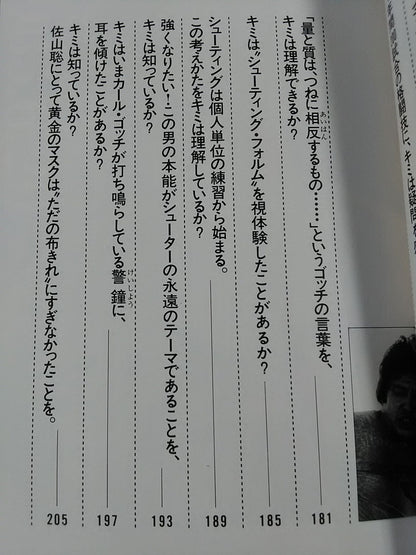 「量と質は、つねに相反するもの……」というゴッチの言葉を、
あいはん
キミは理解できるか？
181
キミは“シューティング・フォルム”を視体験したことがあるか？
185
シューティングは個人単位の練習から始まる。
この考えかたをキミは理解しているか？
189
強くなりたい！この男の本能がシューターの永遠のテーマであることを、
キミは知っているか？
193
キミはいまカール・ゴッチが打ち鳴らしている警鐘に、
けいしょう
耳を傾けたことがあるか？
197
キミは知っているか？
佐山聡にとって黄金のマスクは“ただの布きれ”にすぎなかったことを。
205